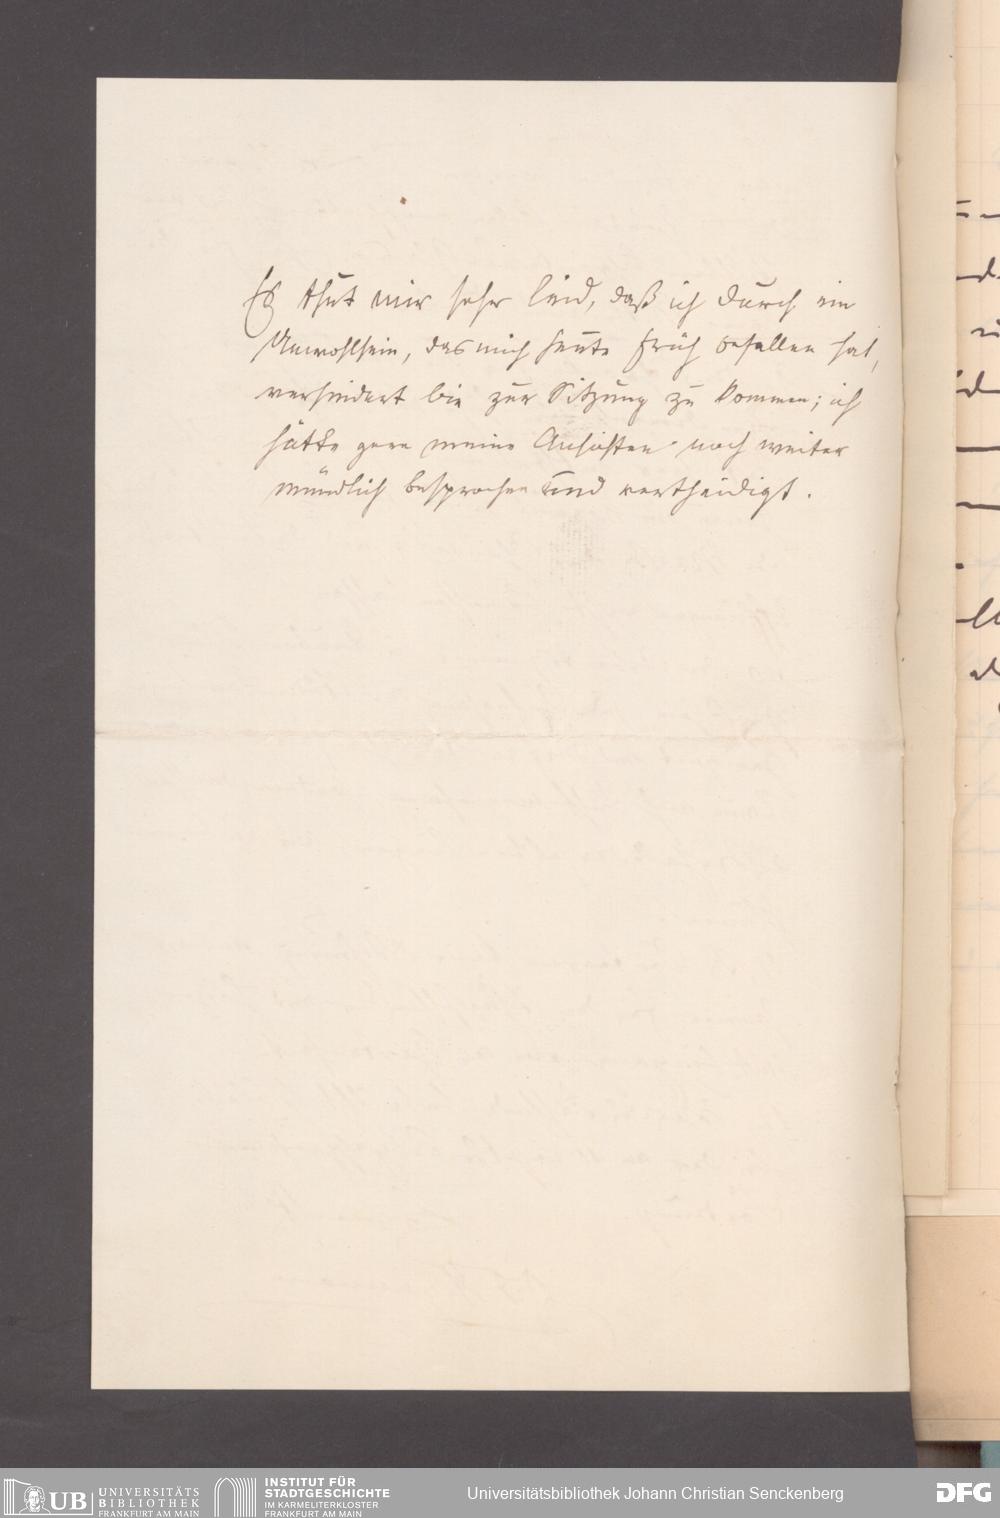 Es thut mir sehr leid, daß ich durch ein
Unwohlsein, das mich heute früh befallen hat,
verhindert bin zur Sitzung zu kommen; ich
hätte gern meine Ansichten noch weiter
mündlich besprochen und vertheidigt.
UB UNIVERSITÄTS
BIBLIOTHEK
FRANKFURT AM MAIN
INSTITUT FÜR
STADTGESCHICHTE
IM KARMELITERKLOSTER
FRANKFURT AM MAIN
Universitätsbibliothek Johann Christian Senckenberg
DFG